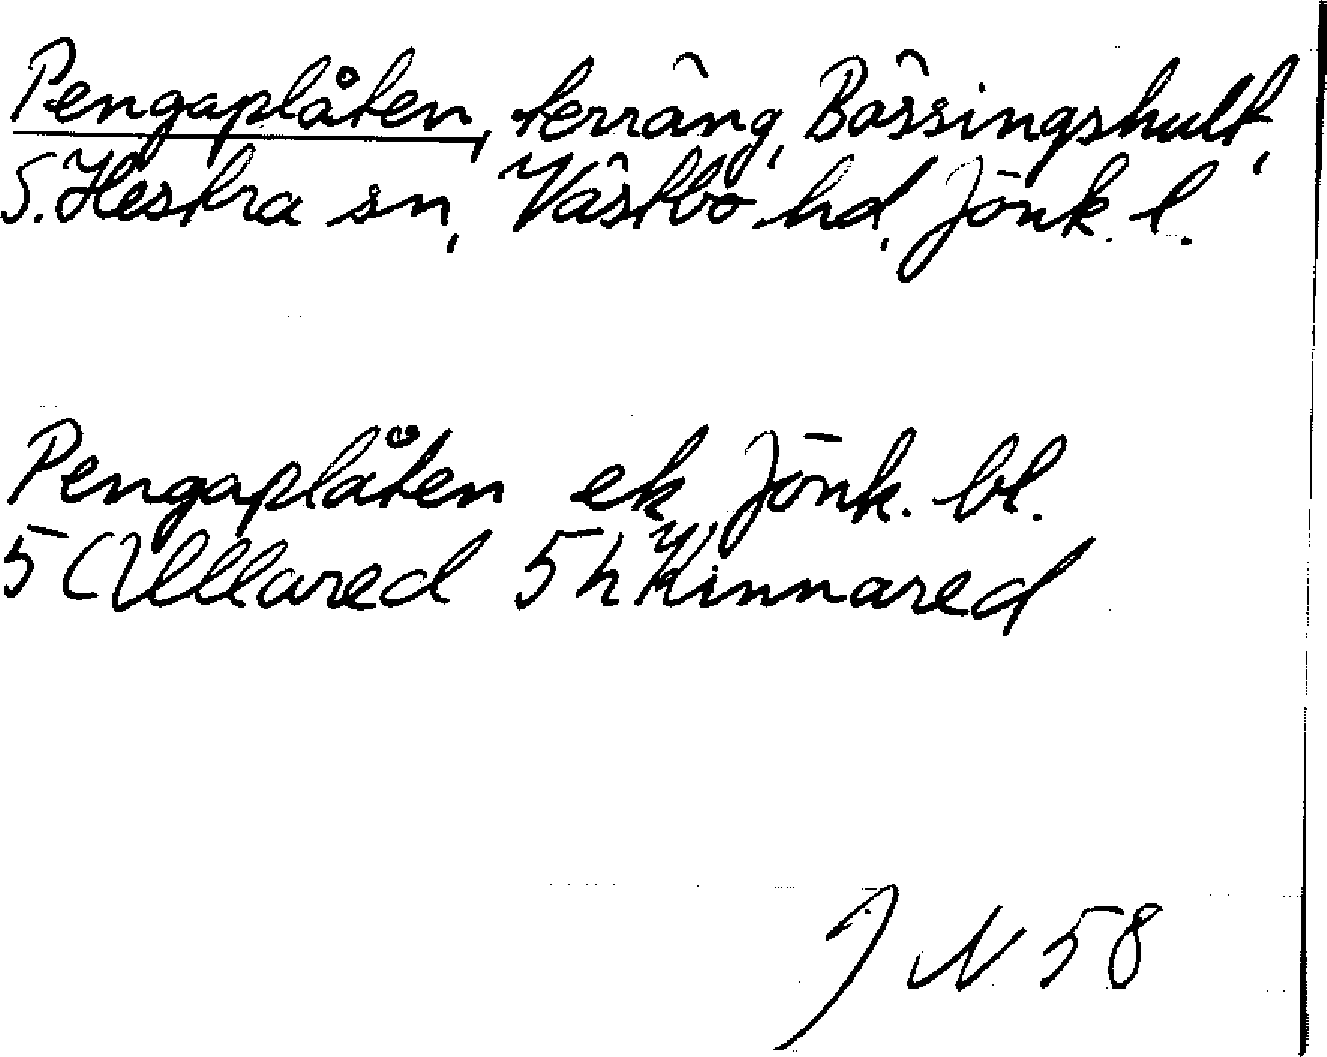 Pengaplåten, terräng, Bässingshult,
S. Hestra sn, Västbo hd, Jönk. l.
Pengaplåten ek Jönk. bl.
5 C Ullared 5 h Kinnared
J N 58